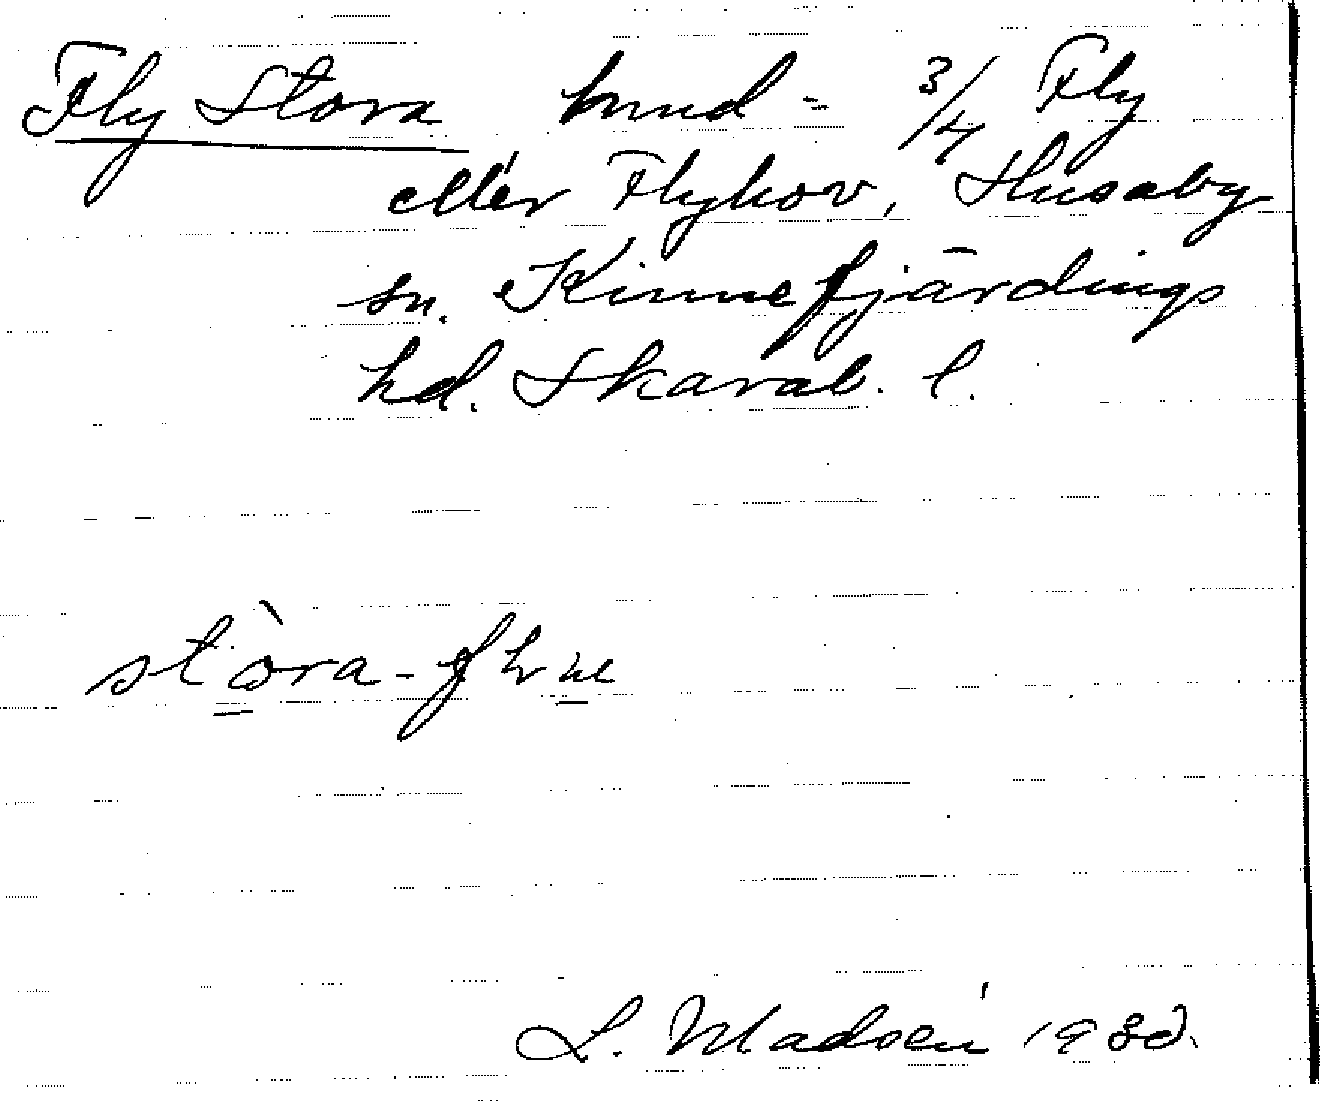 Fly Stora hmd - 3/4 Fly
eller Flyhov, Husaby
sn. Kinnefjärdings
hd. Skarab. l.
stòra-
L. Madsén